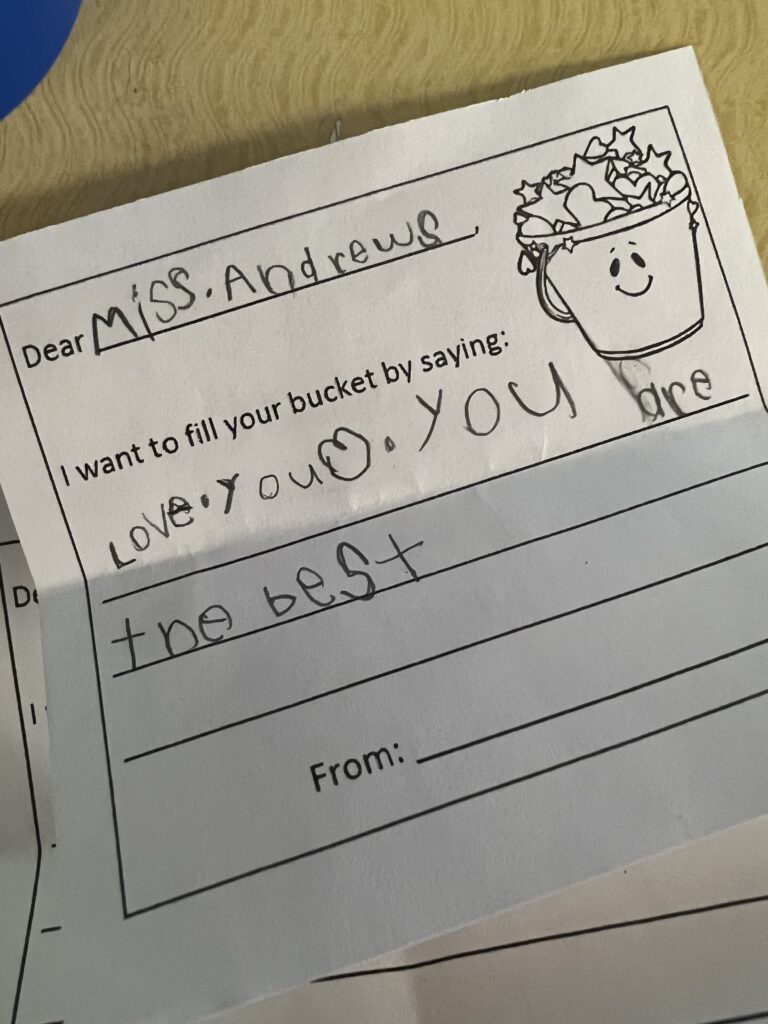 Dear Miss. Andrews
I want to fill your bucket by saying:
Love. you♡. you are
the best
From:
De
I